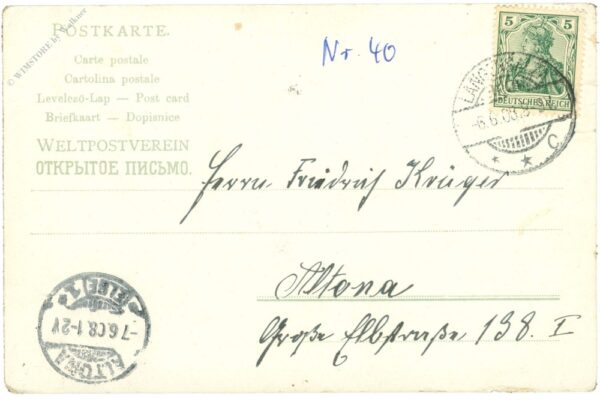 © WIMSTORE by Walkner
POSTKARTE.
Carte postale
Cartolina postale
Levelező-Lap — Post card
Briefkaart — Dopisnice
WELTPOSTVEREIN
ОТКРЫТОЕ ПИСЬМО.
Nr. 40
5 5
DEUTSCHES REICH
-6.6.08.
C
Herrn Friedrich Krüger
Altona
Große Elbstraße 138. I
ALTONA
-7.6.08.1-2N
* (ELBE) 1 *